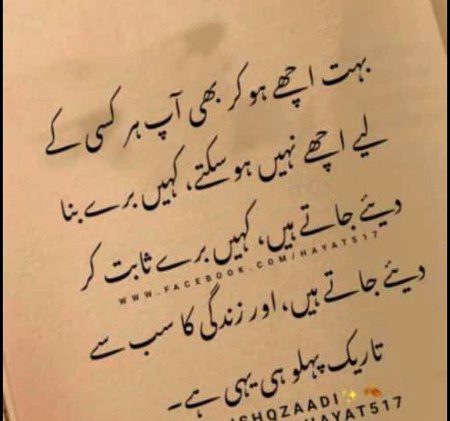 بہت اچھے ہو کر بھی آپ ہر کسی کے
لیے اچھے نہیں ہو سکتے، کہیں برے بنا
دیئے جاتے ہیں، کہیں برے ثابت کر
WWW.FACEBOOK.COM/HAYAT517
دیئے جاتے ہیں، اور زندگی کا سب سے
تاریک پہلو ہی یہی ہے۔
SHQZAADI✨🍂
HAYAT517